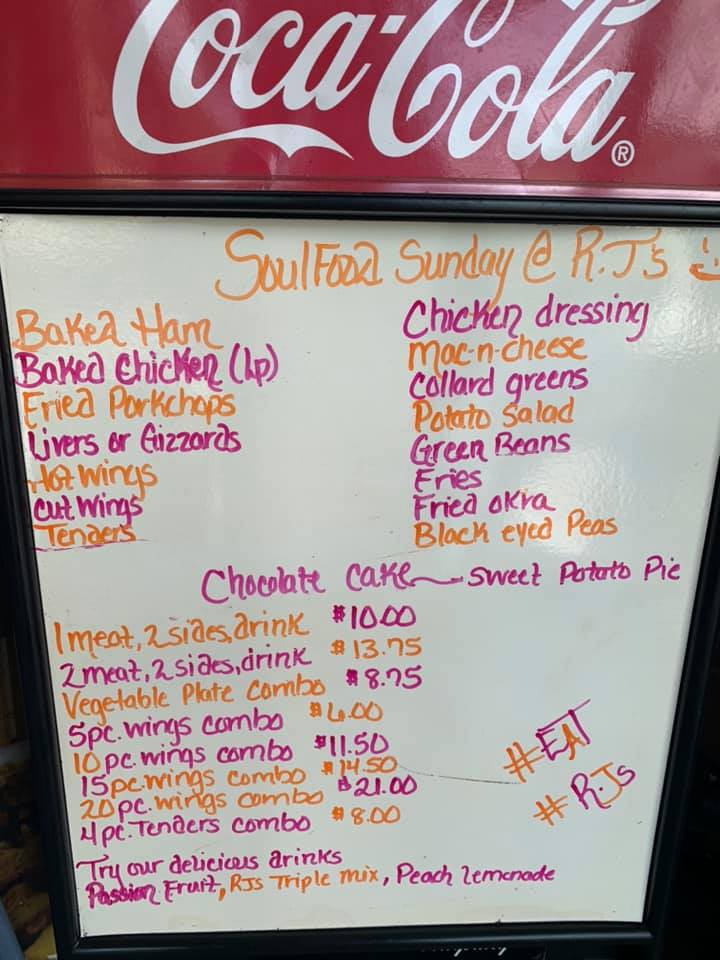 Coca-Cola®
SoulFood Sunday @ R.J's
Baked Ham
Baked Chicken (Lp)
Fried Porkchops
Livers or Gizzards
Hot wings
Cut Wings
Tenders
Chicken dressing
Mac-n-cheese
Collard greens
Potato Salad
Green Beans
Fries
Fried okra
Black eyed Peas
Chocolate Cake Sweet Potato Pie
1 meat, 2 sides, drink $10.00
2 meat, 2 sides, drink $13.75
Vegetable Plate Combo $8.75
5pc. wings combo $6.00
10 pc. wings combo $11.50
15pc. wings combo $14.50
20 pc. wings combo $21.00
4pc. Tenders combo $8.00
#EAT
#RJs
Try our delicious drinks
Passion Fruit, RJs Triple mix, Peach Lemonade